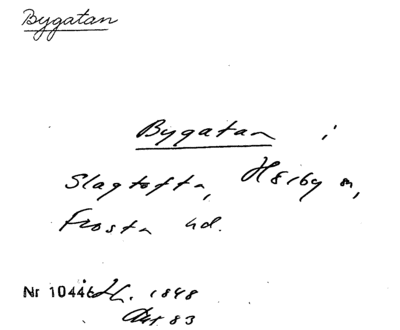 Bygatan
Bygatan i
Slagtofta, Hörby sn,
Frosta hd.
Nr 10446 1848
Akt 83